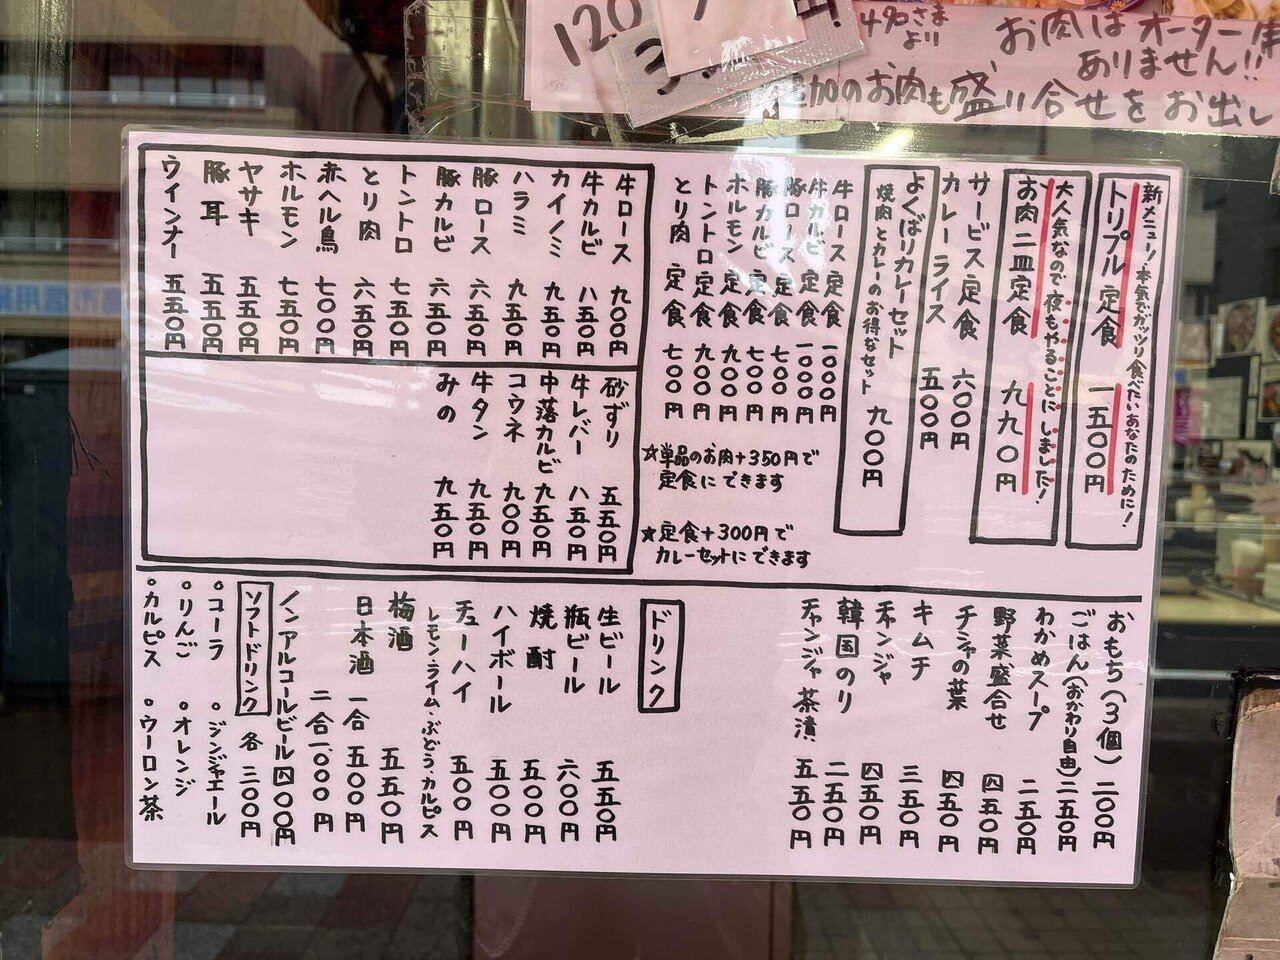 120
4名さま
より
お肉はオーダー
ありません!!
加のお肉も盛り合せをお出し
新メニュー!本気でガッツリ食べたいあなたのために!
トリプル定食 一五〇〇円
大人気なので夜もやることにしました!
お肉二皿定食 九九〇円
サービス定食 六〇〇円
カレーライス 五〇〇円
よくばりカレーセット
焼肉とカレーのお得なセット 九〇〇円
牛ロース定食 一〇〇〇円
牛カルビ定食 一〇〇〇円
豚ロース定食 七〇〇円
豚カルビ定食 七〇〇円
ホルモン定食 九〇〇円
トントロ定食 九〇〇円
とり肉定食 七〇〇円
☆単品のお肉+350円で
定食にできます
★定食+300円で
カレーセットにできます
牛ロース 九〇〇円
牛カルビ 八五〇円
カイノミ 九五〇円
ハラミ 九五〇円
豚ロース 六五〇円
豚カルビ 六五〇円
トントロ 七五〇円
とり肉 六五〇円
赤ヘル鳥 七〇〇円
ホルモン 七五〇円
ヤサキ 五五〇円
豚耳 五五〇円
ウィンナー 五五〇円
砂ずり 五五〇円
牛レバー 八五〇円
中落カルビ 九五〇円
コウネ 九〇〇円
牛タン 九五〇円
みの 九五〇円
おもち(3個) 二〇〇円
ごはん(おかわり自由) 二五〇円
わかめスープ 二五〇円
野菜盛合せ 四五〇円
チシャの葉 四五〇円
キムチ 三五〇円
チャンジャ 四五〇円
韓国のり 二五〇円
チャンジャ茶漬 五五〇円
ドリンク
生ビール 五五〇円
瓶ビール 六〇〇円
焼酎 五〇〇円
ハイボール 五〇〇円
チューハイ 五〇〇円
レモン・ライム・ぶどう・カルピス
梅酒 五五〇円
日本酒 一合 五〇〇円
二合 一〇〇〇円
ノンアルコールビール 四〇〇円
ソフトドリンク 各 三〇〇円
・コーラ ・ジンジャエール
・りんご ・オレンジ
・カルピス ・ウーロン茶